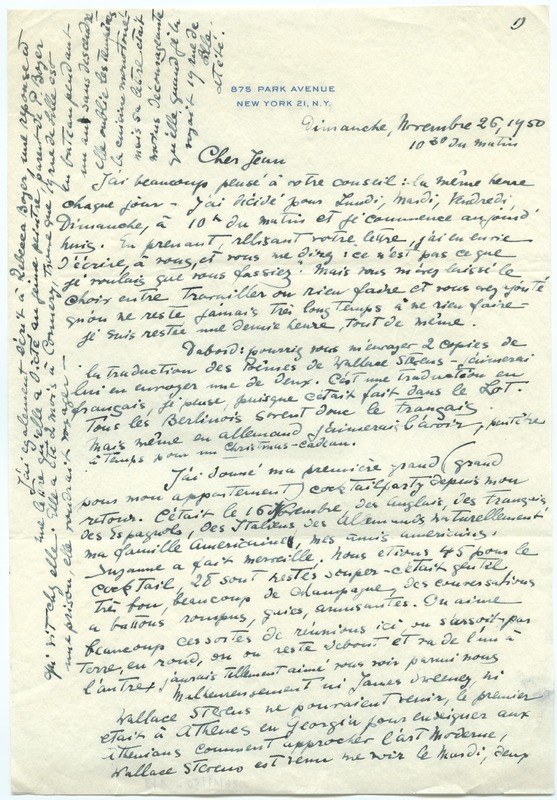 1)
875 PARK AVENUE
NEW YORK 21, N.Y.
Dimanche, Novembre 26, 1950
10 30 du matin
Cher Jean
J'ai beaucoup pensé à votre conseil : la même heure
chaque jour – J'ai décidé pour Lundi, Mardi, Vendredi,
Dimanche, à 10h du matin et je commence aujourd'
hui. En prenant, relisant votre lettre, j'ai envie
d'écrire, à vous, et vous me direz : ce n'est pas ce que
je voulais que vous fassiez. Mais vous m'avez laissé le
choix entre travailler ou rien faire et vous avez ajouté
qu'on ne reste jamais très long temps à ne rien faire –
je suis restée une demie heure, tout de même.
Dabord: pourriez vous m'envoyer 2 copies de
la traduction des poèmes de Wallace Stevens – j'aimerai
lui en envoyer une de deux. C'est une traduction en
français, je pense, puisque c'était fait dans le Lot.
Tous les Berlinois savent donc le français
Mais même en allemand j'aimerais l'avoir, peutêtre
à temps pour un Christmas-cadeau.
J'ai donné ma première grand (grand
pour mon appartement) cocktailparty depuis mon
retour. C'était le 16 Novembre, des Anglais, des français
des Espagnols, des Italiens des Allemands naturellement
ma famille Américaine, mes amis américains.
Suzanne a fait merveille. Nous étions 45 pour le
cocktail, 28 sont restés souper – c'était gentil,
très bon, beaucoup de champagne, des conversations
a batons rompus, gaies, amusantes. On aime
beaucoup ces sortes de réunions ici ou s'assoit par
terre, en rond, ou on reste debout et va de l'un à
l'autre, j'aurais tellement aimé vous voir parmi nous
Malheureusement ni James Sweeney, ni
Wallace Stevens ne pouraient venir, le premier
était à Athenes en Georgia pour enseigner aux
Athenians comment approcher l'art Moderne,
Wallace Stevens est venu me voir le Mardi, deux
J'ai également écrit à Rebecca Boyer, une réponse à
une lettre qu'elle a dicté au jeune peintre, parent de P. Boyer
qui vit chez elle. Elle a été 2 mois à Commercy, trouve que la rue de Lille est
une prison, elle voudrait voyager –
un an sans descendre
elle oublie les
la cuisine
mais sa lettre était
moins décourageante
qu'elle quand je la
voyait 19 rue de
Lille
cet été.